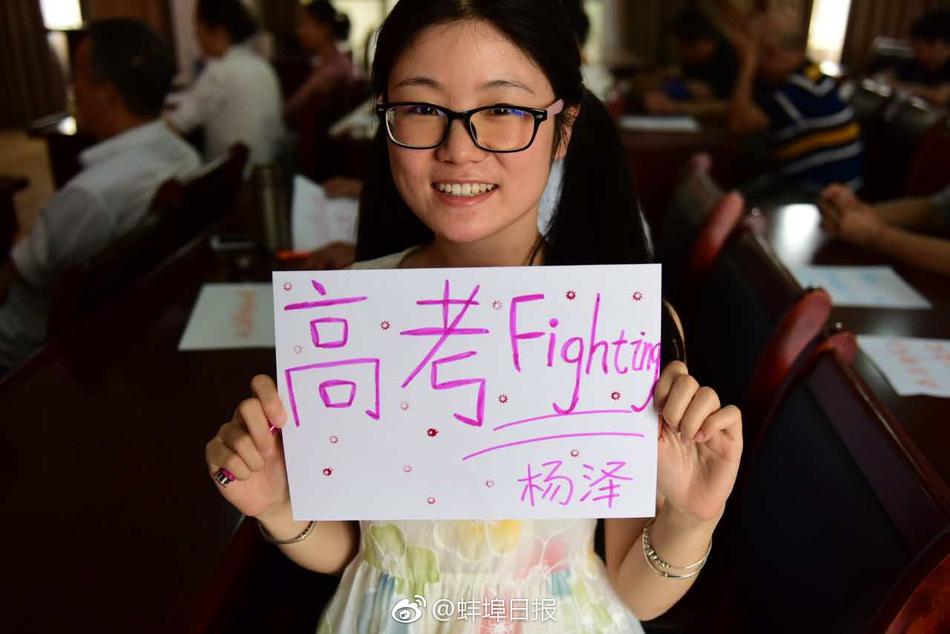 高考 Fighting
杨泽
@蚌埠日报